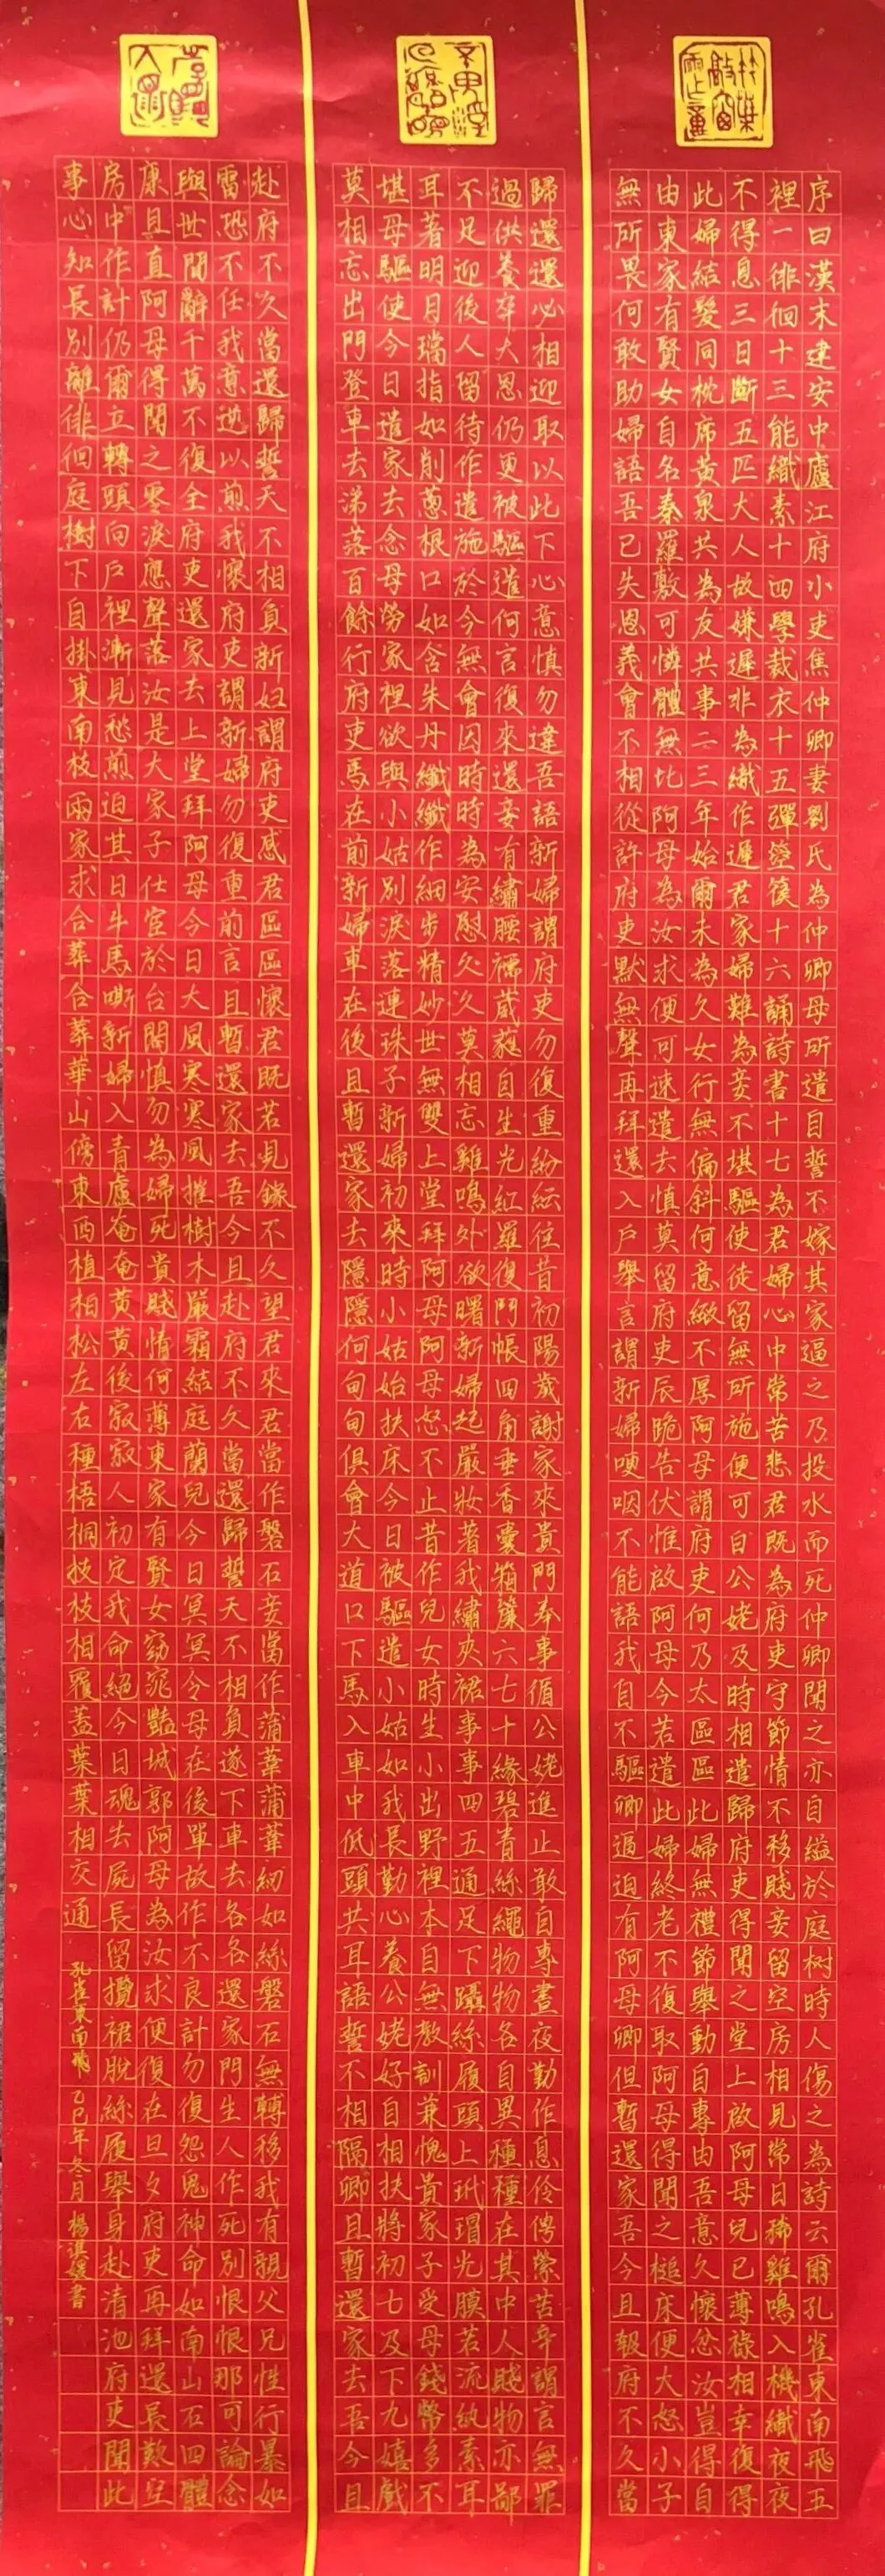 序曰漢末建安中廬江府小吏焦仲卿妻劉氏為仲卿母所遣自誓不嫁其家逼之乃投水而死仲卿聞之亦自縊於庭树時人傷之為詩云爾孔雀東南飛五
裡一徘徊十三能織素十四學裁衣十五彈箜篌十六誦詩書十七為君婦心中常苦悲君既為府吏守節情不移賤妾留空房相見常日稀雞鳴入機織夜夜
不得息三日斷五匹大人故嫌遲非為織作遲君家婦難為妾不堪驅使徒留無所施便可白公姥及時相遣歸府吏得聞之堂上啟阿母兒已薄祿相幸復得
此婦結髮同枕席黃泉共為友共事二三年始爾未為久女行無偏斜何意緻不厚阿母謂府吏何乃太區區此婦無禮節舉動自專由吾意久懷忿汝豈得自
由東家有賢女自名秦羅敷可憐體無比阿母為汝求便可速遣去慎莫留府吏辰跪告伏惟啟阿母今若遣此婦終老不復取阿母得聞之槌床便大怒小子
無所畏何敢助婦語吾已失恩義會不相從許府吏默無聲再拜還入戶舉言謂新婦哽咽不能語我自不驅卿逼迫有阿母卿但暫還家吾今且報府不久當
歸還還必相迎取以此下心意慎勿違吾語新婦謂府吏勿復重紛紜往昔初陽歲謝家來貴門奉事循公姥進止敢自專晝夜勤作息伶俜縈苦辛謂言無罪
過供養卒大恩仍更被驅遣何言復來還妾有繡腰襦葳蕤自生光紅羅復鬥帳四角垂香囊箱簾六七十緣碧青絲繩物物各自異種種在其中人賤物亦鄙
不足迎後人留待作遣施於今無會因時時為安慰久久莫相忘雞鳴外欲曙新婦起嚴妝著我繡夾裙事事四五通足下躡絲履頭上玳瑁光膜若流紈素耳
耳著明月璫指如削蔥根口如含朱丹纖纖作細步精妙世無雙上堂拜阿母阿母怒不止昔作兒女時生小出野裡本自無教訓兼愧貴家子受母錢幣多不
堪母驅使今日遣家去念母勞家裡欲與小姑別淚落連珠子新婦初來時小姑始扶床今日被驅遣小姑如我長勤心養公姥好自相扶將初七及下九嬉戲
莫相忘出門登車去涕落百餘行府吏馬在前新婦車在後且暫還家去隱隱何甸甸俱會大道口下馬入車中低頭共耳語誓不相隔卿且暫還家去吾今且
赴府不久當還歸誓天不相負新妇謂府吏感君區區懷君既若見錄不久望君來君當作磐石妾當作蒲葦蒲葦紉如絲磐石無轉移我有親父兄性行暴如
雷恐不任我意逆以煎我懷府吏謂新婦勿復重前言且暫還家去吾今且赴府不久當還歸誓天不相負遂下車去各各還家門生人作死別恨恨那可論念
與世間辭千萬不復全府吏還家去上堂拜阿母今日大風寒寒風摧樹木嚴霜結庭蘭兒今日冥冥令母在後單故作不良計勿復怨鬼神命如南山石四體
康且直阿母得聞之零淚應聲落汝是大家子仕宦於台閣慎勿為婦死貴賤情何薄東家有賢女窈窕豔城郭阿母為汝求便復在旦夕府吏再拜還長歎空
房中作計仍爾立轉頭向戶裡漸見愁煎迫其日牛馬嘶新婦入青廬奄奄黃黃後寂寂人初定我命絕今日魂去屍長留攬裙脫絲履舉身赴清池府吏聞此
事心知長別離徘徊庭樹下自掛東南枝兩家求合葬合葬華山傍東西植柏松左右種梧桐枝枝相覆蓋葉葉相交通
孔雀東南飛 乙巳年冬月 楊淇媛書